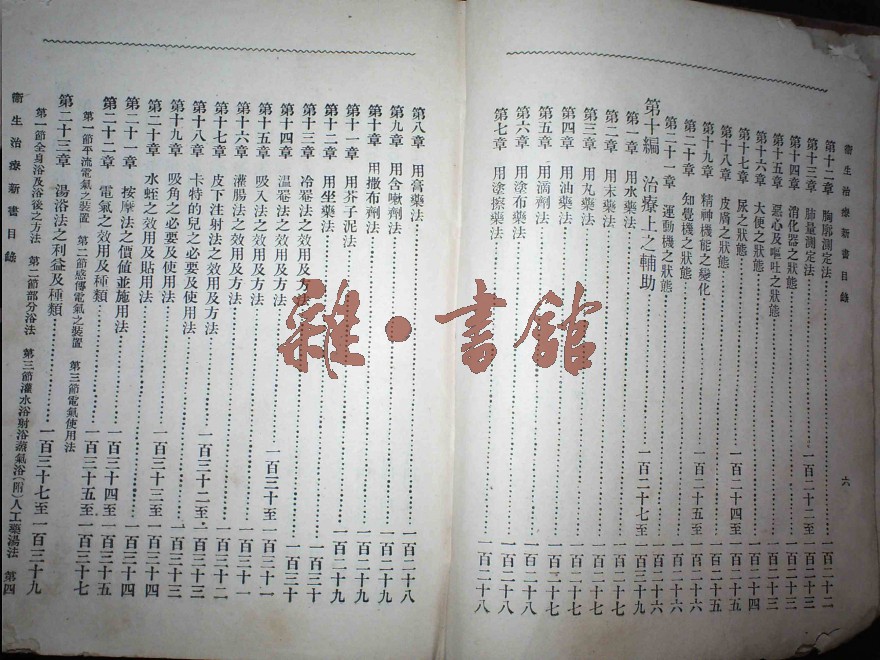 衞生治療新書目錄 六
第十二章 胸廓測定法 一百二十二
第十三章 肺量測定法 一百二十二至一百二十三
第十四章 消化器之狀態 一百二十三
第十五章 惡心及嘔吐之狀態 一百二十三
第十六章 大便之狀態 一百二十四
第十七章 尿之狀態 一百二十四至一百二十五
第十八章 皮膚之狀態 一百二十五
第十九章 精神機能之變化 一百二十五至一百二十六
第二十章 知覺機之狀態 一百二十六
第二十一章 運動機之狀態 一百二十六
第十編 治療上之輔助 一百二十七至一百三十九
第一章 用水藥法 一百二十七
第二章 用末藥法 一百二十七
第三章 用丸藥法 一百二十七
第四章 用油藥法 一百二十七
第五章 用滴劑法 一百二十八
第六章 用塗布劑法 一百二十八
第七章 用塗擦藥法 一百二十八
第八章 用膏藥法 一百二十八
第九章 用含嗽劑法 一百二十九
第十章 用撒布劑法 一百二十九
第十一章 用芥子泥法 一百二十九
第十二章 用坐藥法 一百二十九
第十三章 冷罨法之效用及方法 一百三十
第十四章 溫罨法之效用及方法 一百三十
第十五章 吸入法之效用及方法 一百三十至一百三十一
第十六章 灌腸法之效用及方法 一百三十一
第十七章 皮下注射法之效用及方法 一百三十一
第十八章 卡特的兒之必要及使用法 一百三十二至一百三十三
第十九章 吸角之必要及使用法 一百三十三
第二十章 水蛭之效用及貼用法 一百三十三至一百三十四
第二十一章 按摩法之價値並施用法 一百三十四
第二十二章 電氣之效用及種類 一百三十四至一百三十五 一百三十五至一百三十七
第一節平流電氣之裝置 第二節感傳電氣之裝置 第三節電氣使用法
第二十三章 湯浴法之利益及種類 一百三十七至一百三十九
第一節全身浴及浴後之方法 第二節部分浴法 第三節灌水浴射浴蒸氣浴(附)人工藥湯法 第四
衞生治療新書目錄
雜·書館